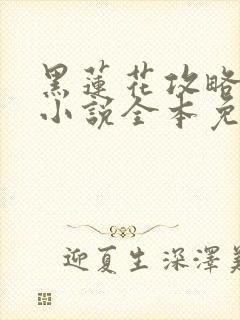 黑蓮花攻略
小說全本免
迎夏生深澤美